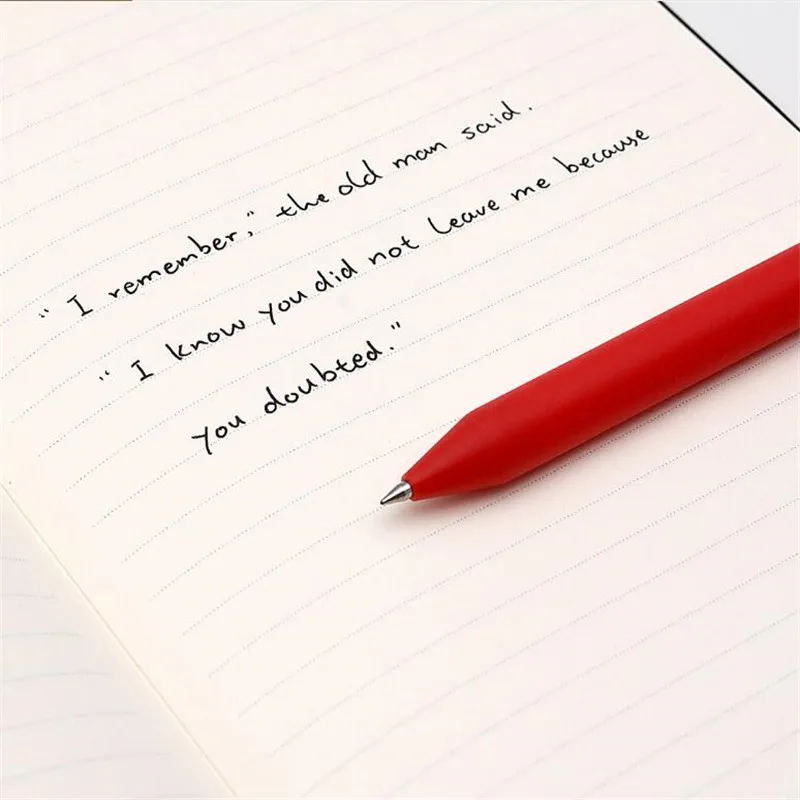 "I remember," the old man said.
"I know you did not leave me because
you doubted."